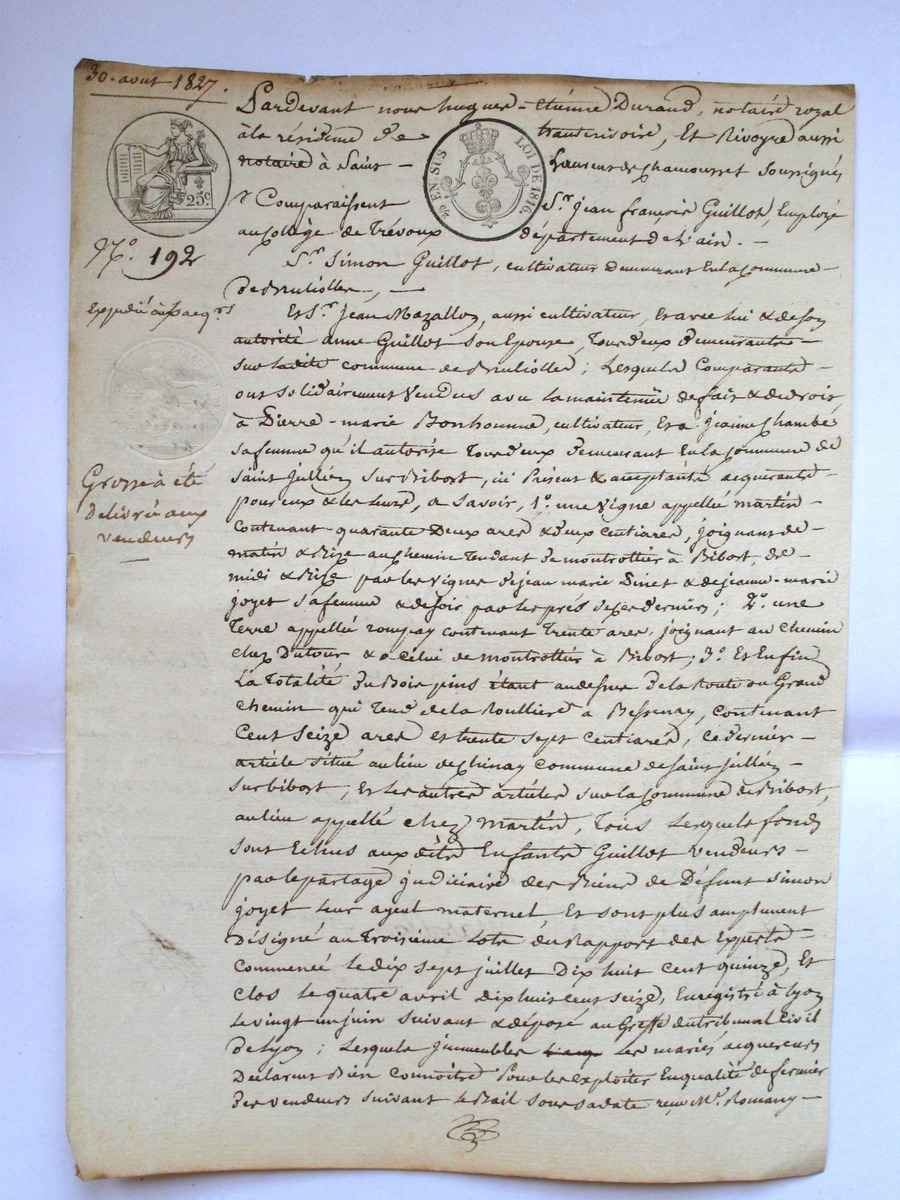 30. aout 1827.
Pardevant nous hugues-Etiénne Durand, notaire royal
à la résidence de hauterivoire, Et Rivoyre aussi
notaire à Saint-Laurent de Chamousset soussignés
Comparaissent Sr. jean françois Guillot, Employé
au Collège de Trévoux département de L'ain. —
Sr. Simon Guillot, cultivateur demeurant En la Commune
de Brulliolles, —
Et Sr. jean Mazallon, aussi cultivateur, Et avec lui & de son
autorité anne Guillot son Epouze, tous deux demeurants
sur ladite commune de Brulliolles; Lesquels Comparants
ont solidairement Vendus avec la maintenue de fait & de droit,
à Pierre-marie Bonhomme, cultivateur, Et a jeanne Chambé
sa femme qu'il autorise tous deux demeurant En la Commune de
saint julien sur Bibost, ici Présent & acceptants acquerants
pour eux & les leurs, a Savoir, 1°. une Vigne appellé martin
contenant quarante Deux ares & deux centiares, joignant de
matin & bize au chemin tendant de montrottier à Bibost, de
midi & bise par les vignes de jean marie & de jeanne-marie
joyet sa femme & de soir par les prés de ces derniers; 2°. une
Terre appellé rompay contenant trente ares, joignant au chemin
chez Dutour & a celui de montrottier à Bibost; 3°. Et Enfin
La Totalité du Bois pins étant au dessus de la Route ou Grand
chemin qui tend de la Roullière à Bessenay, contenant
Cent Seize ares et trente sept Centiares, ce dernier
article situé au lieu de Chinay Commune de saint jullien
sur bibost, Et les autres articles sur la commune de Bibost,
au lieu appellé chez martin, Tous Lesquels fonds
sont Echus aux dits Enfants Guillot vendeurs
par le partage judiciaire des Biens de Défunt Simon
joyet leur ayeul maternel Et sont plus amplement
désigné au troisième Lots du Rapport des Experts
commencé le dix sept juillet Dix huit cent quinze, Et
clos le quatre avril dix huit cent seize, Enregistré à Lyon
le vingt un juin suivant & déposé au Greffe du tribunal Civil
de Lyon; Lesquels jmmeubles les mariés acquereurs
Declarent Bien Connoître Pour les exploiter En qualité de fermier
des vendeurs suivant le Bail sous sa date reçu Me. Romany
25c.
EN SUS
LOI DE 1816.
N°. 192
Expédié aux acqrs
Grosse à été
delivrée aux
vendeurs